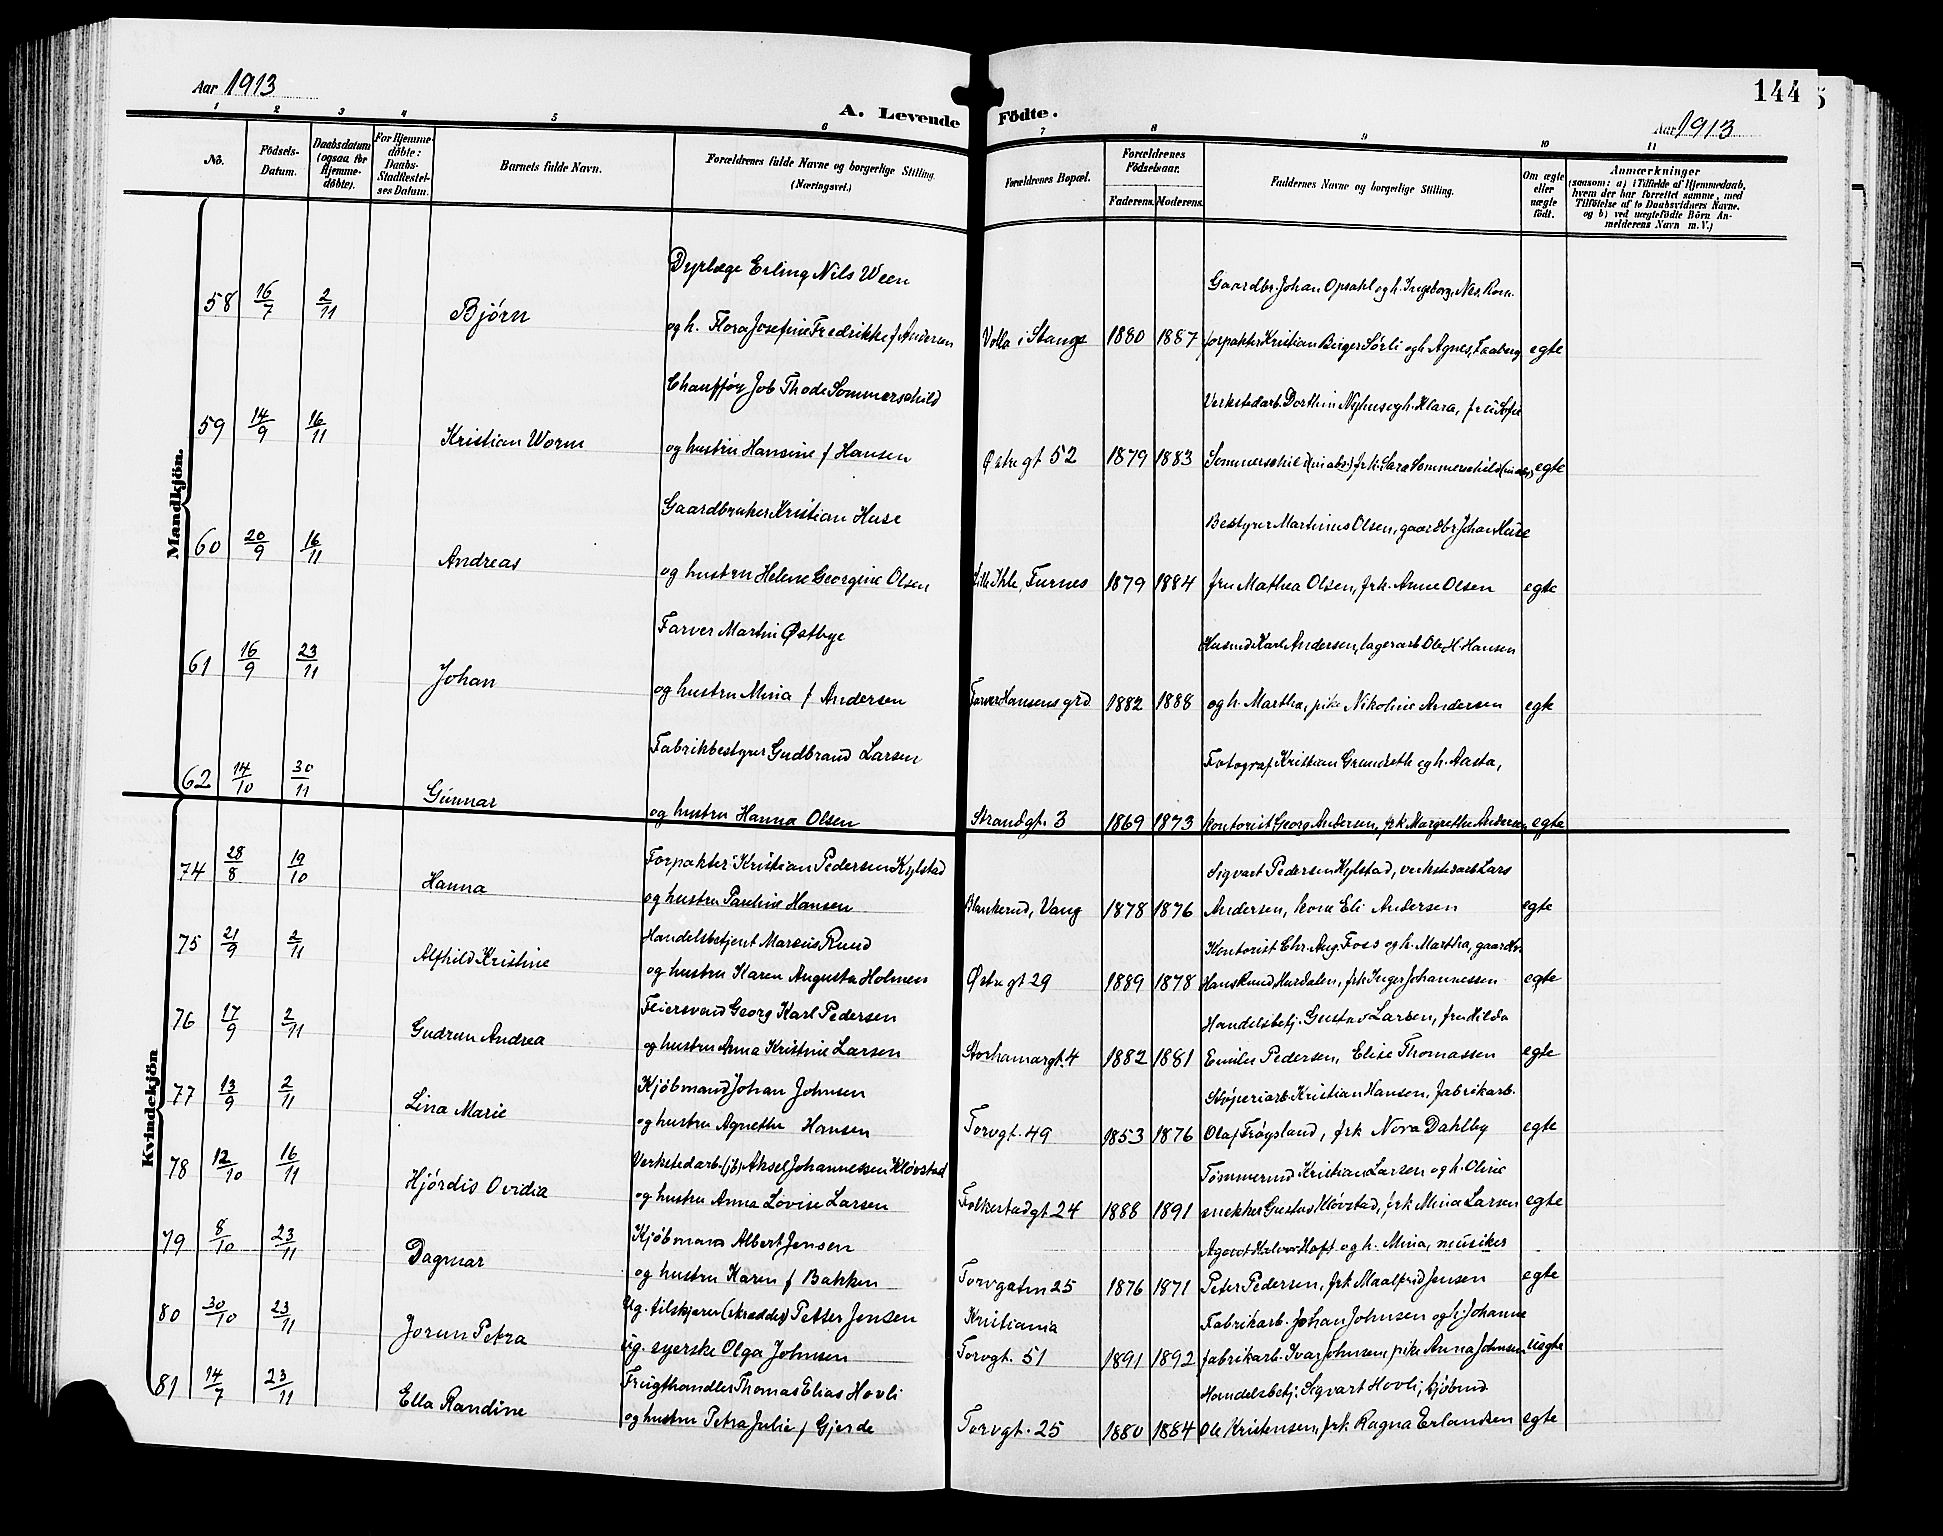 Aar 1913
144
5
A. Levende Födte.
Aar 1913
1 2 3 4 5 6 7 8 9 10 11
No.
Födsels-
Datum.
Daabsdatum
(ogsaa for
Hjemme-
döbte).
For Hjemme-
döbte:
Daabs-
Stadfæstel-
ses Datum.
Barnets fulde Navn.
Forældrenes fulde Navne og borgerlige Stilling.
(Næringsvei.)
Forældrenes Bopæl.
Forældrenes
Födselsaar.
Faderens. Moderens.
Faddernes Navne og borgerlige Stilling.
Om ægte
eller
uægte
födt.
Anmærkninger
(saasom: a) i Tilfælde af Hjemmedaab,
hvem der har forrettet samme, med
Tilföielse af to Daabsvidners Navne,
og b) ved uægtefödte Börn An-
melderens Navn m. V.)
Mandkjön.
Dyrlæge Erling Nils Ween
Gaardbr. Johan Opsahl og h. Ingeborg, Nes, Rom.
58 16/7 2/11 Bjørn og h. Flora Josefine Fredrikke f Andersen Volla i Stange 1880 1887 forpakter Kristian Birger Sörli og h Agnes, Faaberg egte
Chauffør Job Thode Sommerschild
Verkstedarb. Dorthin Nyhus og h. Klara, fru Sofie
59 14/9 16/11 Kristian Worm og hustru Hansine f Hansen Østregt 52 1879 1883 Sommerschild (in abs.) frk. Sara Sommerschild (in abs) egte
Gaardbruker Kristian Huse
Bestyrer Martinus Olsen, gaardbr Johan Huse
60 20/9 16/11 Andreas og hustru Helene Georgine Olsen Lille Ihle, Furnes 1879 1884 fru Mathea Olsen, frk. Anne Olsen egte
Farver Martin Østbye
Husmd Karl Andersen, lagerarb Ole H. Hansen
61 16/9 23/11 Johan og hustru Mina f Andersen Farver Hansens grd 1882 1888 og h. Martha, pike Nikoline Andersen egte
Fabrikbestyrer Gudbrand Larsen
Fotograf Kristian Grundseth og h. Aasta,
62 14/10 30/11 Gunnar og hustru Hanna Olsen Strandgt. 3 1869 1873 kontorist Georg Andersen, frk. Margrethe Andersen egte
Kvindekjön
Forpakter Kristian Pedersen Kylstad
Sigvart Pedersen Kylstad, verkstedarb Lars
74 28/8 19/10 Hanna og hustru Pauline Hansen Blankerud, Vang 1878 1876 Andersen, kone Eli Andersen egte
Handelsbetjent Marius Ruud
Kontorist Chr. Aug. Foss og h. Martha, gaardbr.
75 21/9 2/11 Alfhild Kristine og hustru Karen Augusta Holmen Østregt 29 1889 1878 Hans Ruud Hurdalen, frk Inger Johannessen egte
Feiersvend Georg Karl Pedersen
Handelsbetj. Gustav Larsen, fru Hilda
76 17/9 2/11 Gudrun Andrea og hustru Anna Kristine Larsen Storhamargt. 4 1882 1881 Emilie Pedersen, Elise Thomassen egte
Kjøbmand Johan Johnsen
Støperiarb. Kristian Hansen, fabrikarb.
77 13/9 2/11 Lina Marie og hustru Agnethe Hansen Torvgt. 49 1853 1876 Olaf Frøysland, frk Nora Dahlby egte
Verkstedarb. (jb) Aksel Johannessen Kløvstad
Tømmermd Kristian Larsen og h. Oline
78 12/10 16/11 Hjördis Ovidia og hustru Anna Lovise Larsen Folkestadgt 24 1888 1891 snekker Gustav Kløvstad, frk Mina Larsen egte
Kjøbmand Albert Jensen
Agent Halvor Hoft og h. Mina, musiker
79 8/10 23/11 Dagmar og hustru Karen f Bakken Torvgaten 25 1876 1871 Peter Pedersen, frk Maalfrid Jensen egte
Ug. tilskjærer (skrædder) Petter Jensen Kristiania
Fabrikarb. Johan Johnsen og h. Johanne
80 30/10 23/11 Jorun Petra ug. syerske Olga Johnsen Torvgt. 51 1891 1892 fabrikarb. Ivar Johnsen, pike Anna Johnsen uegte
Frugthandler Thomas Elias Hovli
Handelsbetj. Sigvart Hovli, kjøbmd
81 14/7 23/11 Ella Randine og hustru Petra Julie f Gjerde Torvgt. 25 1880 1884 Ole Kristensen, frk Ragna Erlandsen egte